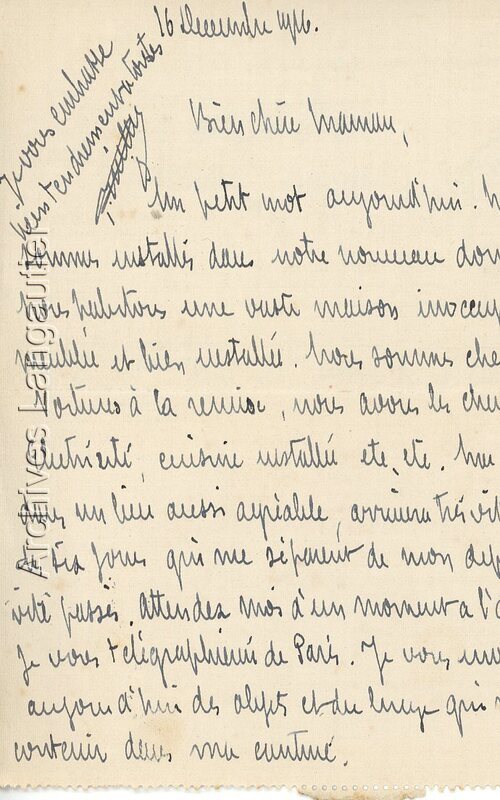 16 Décembre 1916.
Je vous embrasse
bien tendrement toutes
Bien chère Maman,
Un petit mot aujourd'hui.
sommes installés dans notre nouveau
Nous habitons une vaste maison
meublée et bien installée. Nous sommes
voitures à la remise, nous avons les
cuisine installée etc, etc.
dans un lieu aussi agréable, arrivera très
jours qui me séparent de mon
vite passés. Attendez moi d'un moment à
Je vous télégraphierai de Paris. Je vous
aujourd'hui des objets et du linge
contenir dans ma cantine.
Archives Langautier